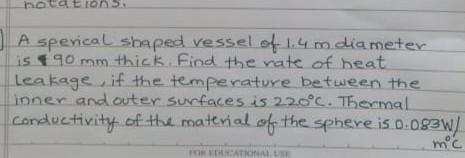 notations.
A sperical shaped vessel of 1.4 m diameter
is 90 mm thick. Find the rate of heat
leakage, if the temperature between the
inner and outer surfaces is 220°C. Thermal
conductivity of the material of the sphere is 0.083W/
m°C
FOR EDUCATIONAL USE